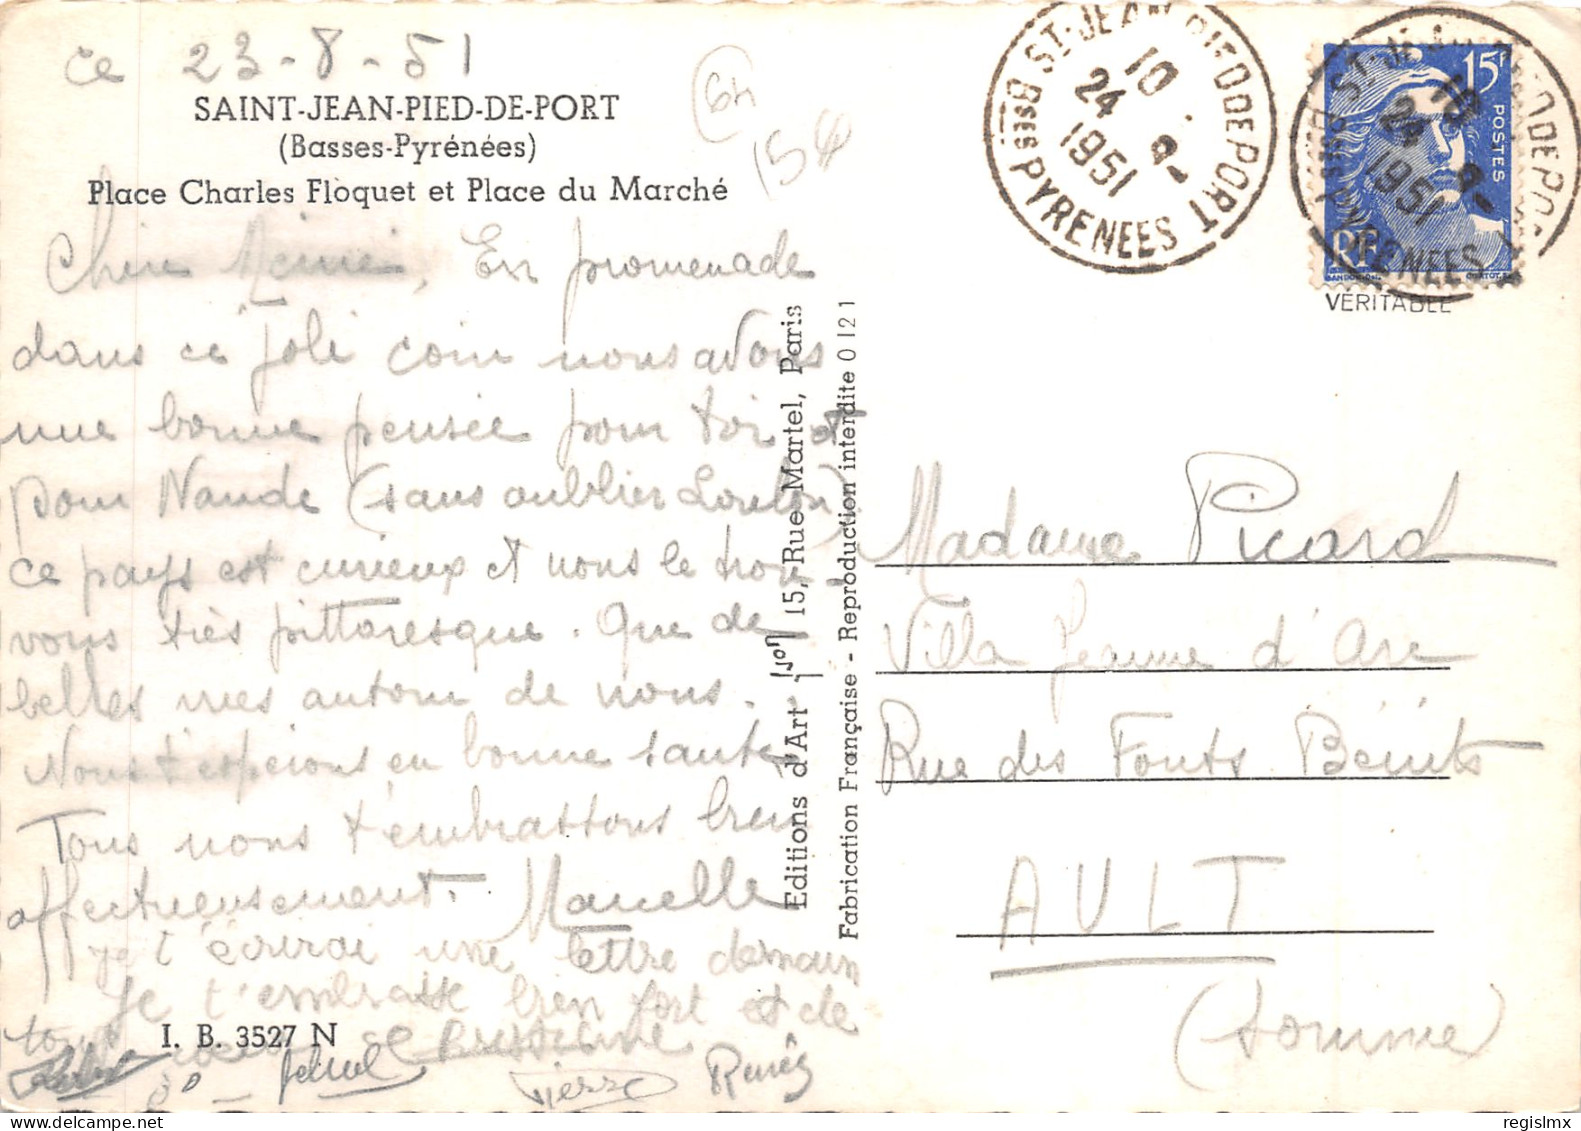 ce 23-8-51
SAINT-JEAN-PIED-DE-PORT
(Basses-Pyrénées)
Place Charles Floquet et Place du Marché
64
15
Chère Mémé, En promenade
dans ce joli coin nous avons
une bonne pensée pour toi et
pour Nande (sans oublier Loulou)
ce pays est curieux et nous le trou-
vons très pittoresque. Que de
belles vues autour de nous.
Nous t'espérons en bonne santé
Tous nous t'embrassons bien
affectueusement. Marcelle
je t'écrirai une lettre demain
Je t'embrasse bien fort et de
tout coeur Christiane
Pierre Renée
I. B. 3527 N
Editions d'Art Yvon 15, Rue Martel, Paris
Fabrication Française - Reproduction interdite 0 121
ST-JEAN PIED DE PORT
10
24 8
1951
Bses PYRENEES
ST-JEAN PIED DE PORT
10
24 8
1951
Bses PYRENEES
15F
POSTES
RF
VERITABLE
Madame Picard
Villa Jeanne d'Arc
Rue des Fonts Bénits
AULT
(Somme)
regislmx